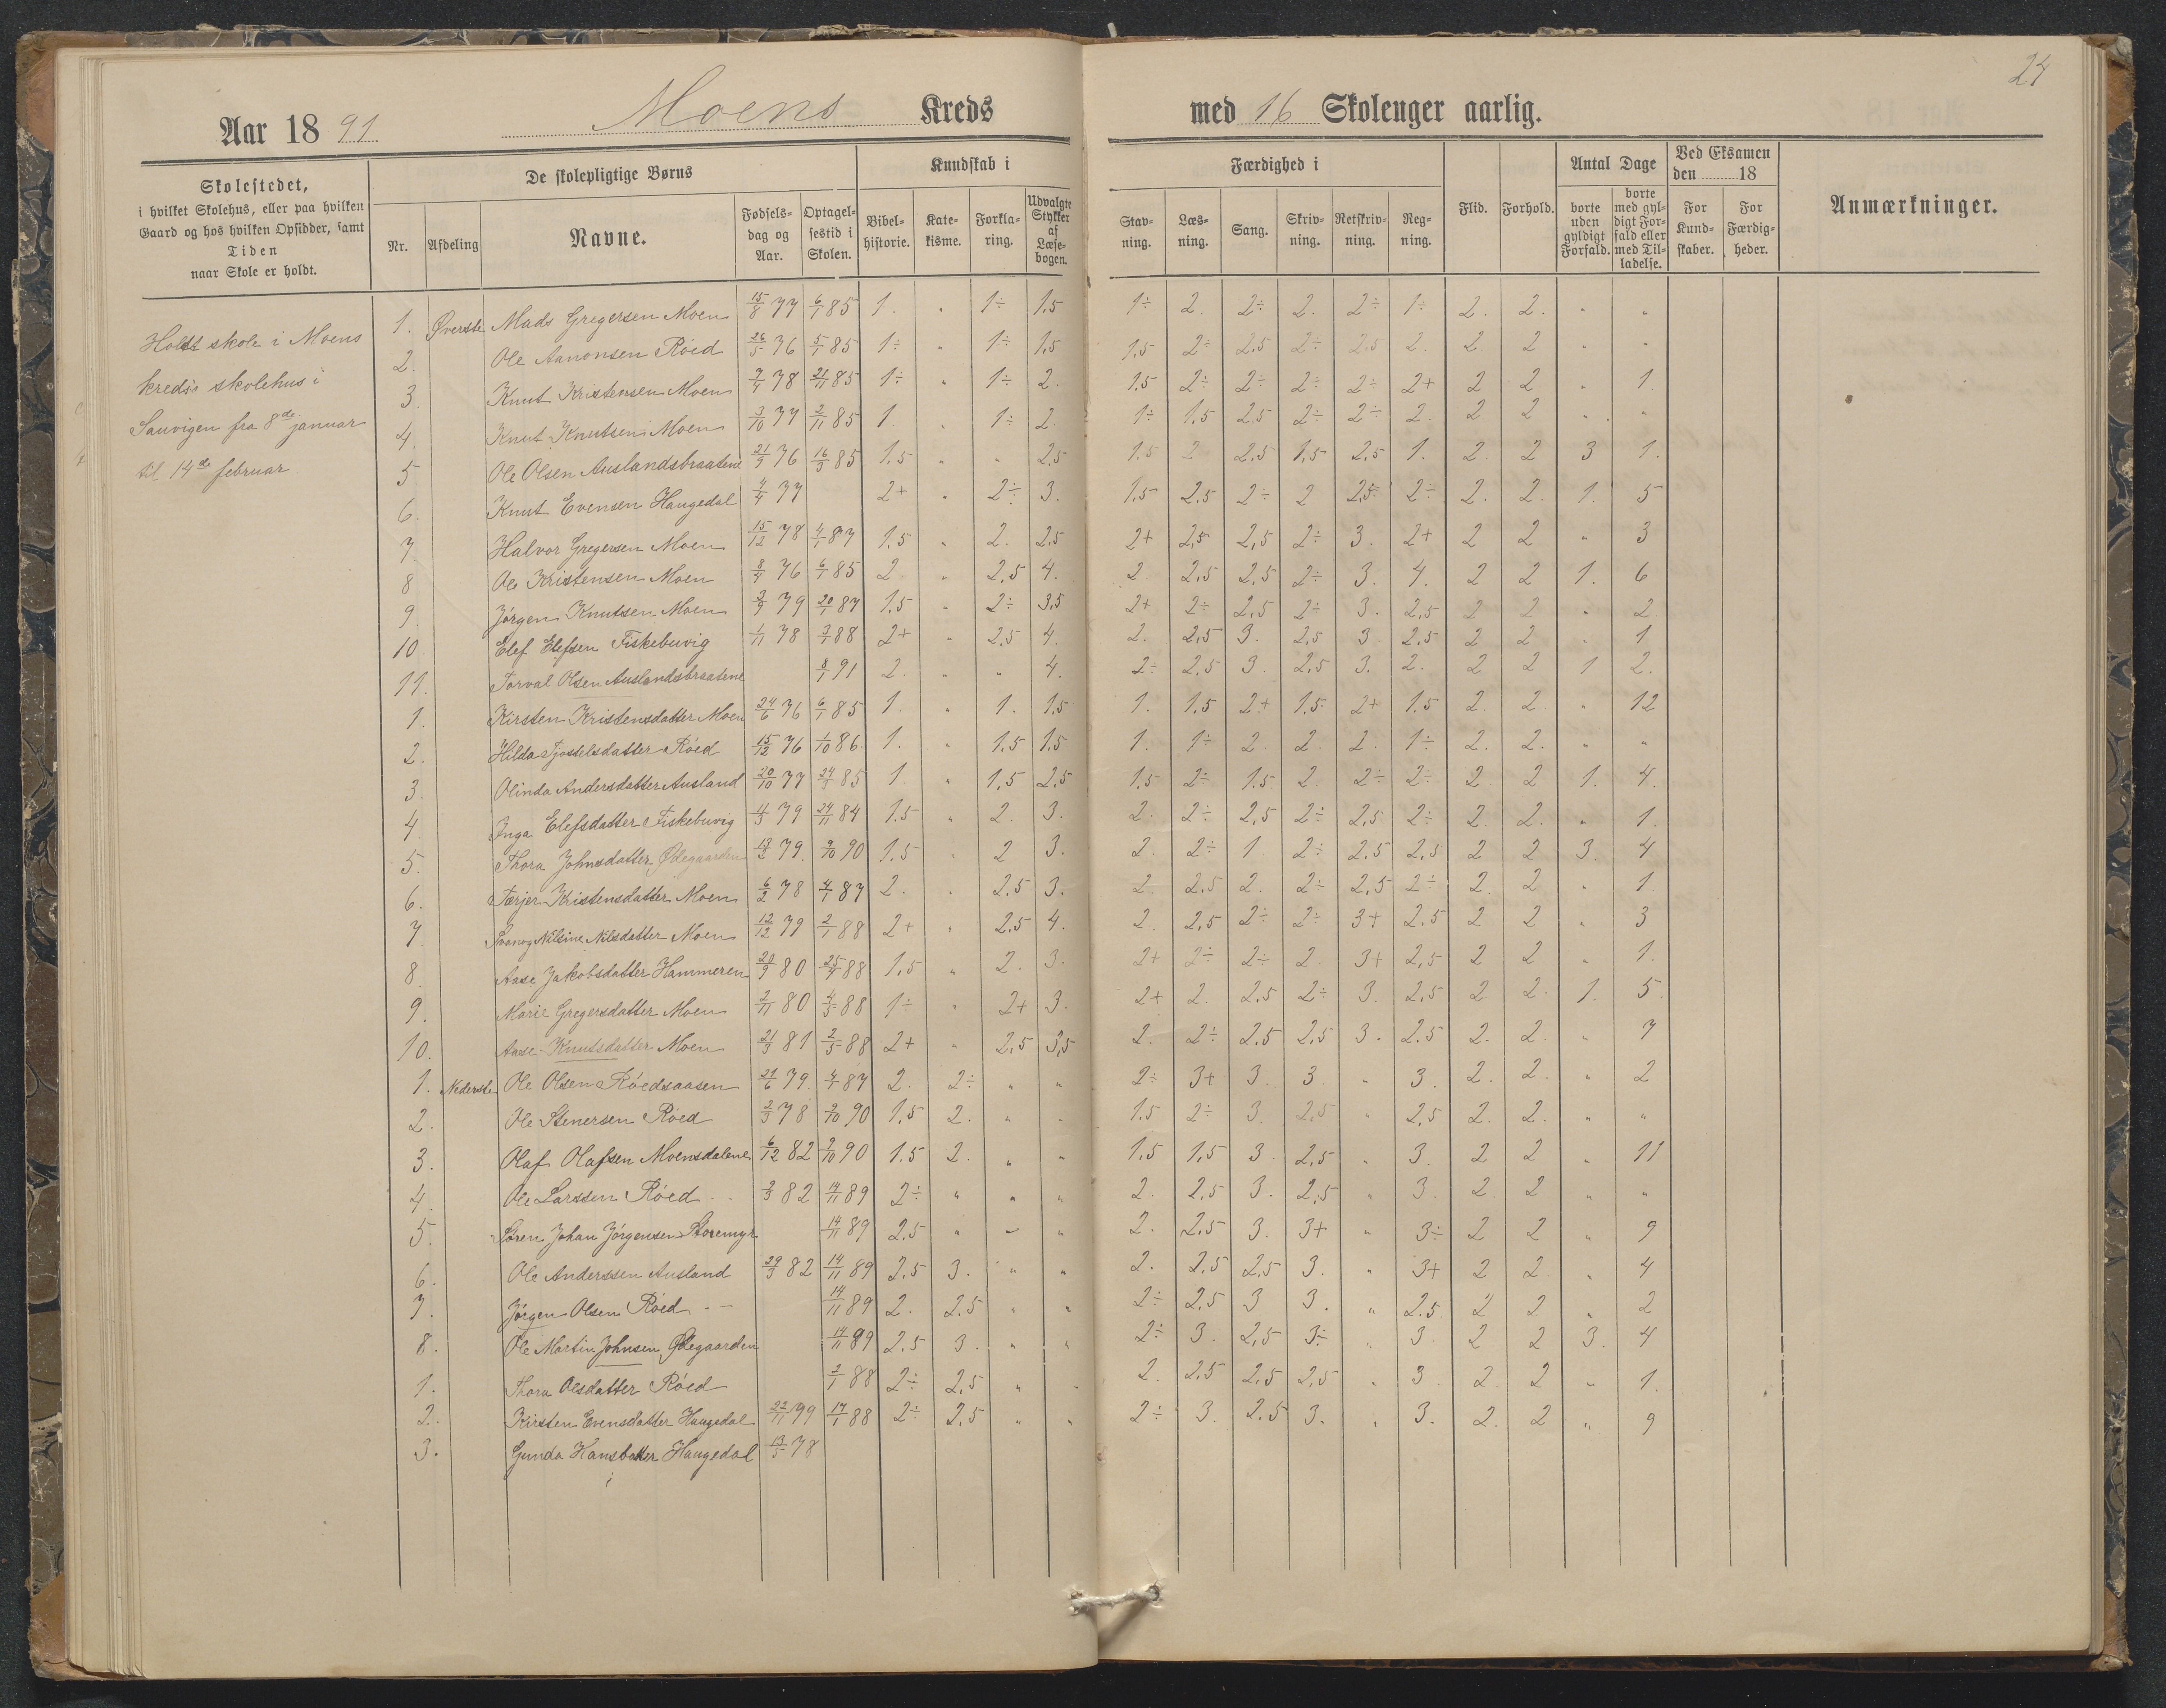 24
Aar 1891 Moens Kreds med 16 Skoleuger aarlig.
Skolestedet, i hvilket Skolehus, eller paa hvilken Gaard og hos hvilken Opsidder, samt Tiden naar Skole er holdt.
De skolepligtige Børns
Nr. Afdeling Navne. Fødselsdag og Aar. Optagelsestid i Skolen.
Kundskab i
Bibelhistorie. Katekisme. Forklaring. Udvalgte Stykker af Læsebogen.
Færdighed i
Stavning. Læsning. Sang. Skrivning. Retskrivning. Regning.
Flid. Forhold.
Antal Dage
borte uden gyldigt Forfald. borte med gyldigt Forfald eller med Tilladelse.
Ved Eksamen den 18
For Kundskaber. For Færdigheder.
Anmærkninger.
Holdt skole i Moens
kreds's skolehus i
Sauvigen fra 8de januar
til 14de februar
1. Øverste Mads Gregersen Moen 15/8 77 6/1 85 1. " 1÷ 1.5 1÷ 2. 2÷ 2. 2÷ 1÷ 2. 2. " "
2. Ole Aanonsen Röed 26/5 76 5/1 85 1÷ " 1÷ 1,5 1,5 2÷ 2,5 2÷ 2,5 2. 2. 2 " "
3. Knut Kristensen Moen 9/4 78 21/11 85 1÷ " 1÷ 2. 1.5 2÷ 2÷ 2÷ 2÷ 2+ 2 2 " 1.
4. Knut Knutsen Moen 3/10 77 2/11 85 1. " 1÷ 2. 1÷ 1,5 2,5 2÷ 2÷ 2. 2 2 " "
5 Ole Olsen Auslandsbraatene 21/9 76 16/9 85 1,5 " " 2,5 1.5 2 2,5 1,5 2,5 1. 2. 2 3 1.
6. Knut Evensen Haugedal 4/4 77 2+ " 2÷ 3. 1,5 2,5 2÷ 2 2,5 2÷ 2. 2. 1. 5
7. Halvor Gregersen Moen 15/12 78 4/1 87 1.5 " 2. 2,5 2+ 2,5 2,5 2÷ 3. 2+ 2 2 " 3
8 Ole Kristensen Moen 8/4 76 6/1 85 2 " 2,5 4. 2. 2,5 2,5 2÷ 3. 4. 2 2 1. 6
9. Jörgen Knutsen Moen 3/9 79 20/1 87 1,5 " 2÷ 3,5 2+ 2÷ 2,5 2÷ 3. 2,5 2 2 " 2
10. Elef Elefsen Fiskebuvig 1/11 78 3/1 88 2+ " 2.5 4. 2. 2,5 3. 2,5 3 2,5 2 2 " 1
11. Torval Olsen Auslandsbraatene 8/1 91 2. " " 4. 2÷ 2,5 3. 2,5 3. 2. 2 2 1 2.
1. Kirsten Kristensdatter Moen 24/6 76 6/1 85 1. " 1. 1,5 1. 1.5 2+ 1,5 2+ 1.5 2. 2 " 12
2. Hilda Tjostelsdatter Röed 15/12 76 1/10 86 1. " 1.5 1.5 1. 1÷ 2 2. 2. 1÷ 2. 2. " "
3. Olinda Andersdatter Ausland 20/10 77 24/9 85 1. " 1,5 2,5 1,5 2÷ 1.5 2. 2÷ 2÷ 2 2 1. 4.
4 Inga Elefsdatter Fiskebuvig 4/3 79 24/11 84 1.5 " 2. 3. 2. 2÷ 2,5 2÷ 2,5 2÷ 2. 2. " 1.
5. Thora Johnsdatter Ödegaarden 79. 9/10 90 1.5 " 2 3. 2. 2÷ 1 2÷ 2.5 2,5 2 2 3. 4
6. Tærjer Kristensdatter Moen 6/2 78 4/1 87 2. " 2.5 3. 2. 2.5 2. 2÷ 2,5 2÷ 2. 2 " 1
7 Nilsine Nilsdatter Moen 12/12 79 2/1 88 2+ " 2.5 4. 2. 2,5 2÷ 2÷ 3+ 2.5 2 2 " 3
8. Aase Jakobsdatter Hammeren 80 88 1,5 " 2. 3. 2+ 2÷ 2÷ 2 3+ 2,5 2 2 " 1.
9. Marie Gregersdatter Moen 2/11 80 88 1÷ " 2+ 3. 2+ 2. 2.5 2÷ 3. 2,5 2 2. 1. 5.
10. Aase Knutsdatter Moen 21/3 81 2/5 88 2+ " 2,5 3,5 2. 2÷ 2.5 2,5 3. 2.5 2. 2. " 7
1. Nederste Ole Olsen Röedsaasen 21/6 79. 4/1 87 2. 2÷ " " 2÷ 3+ 3. 3. " 3. 2. 2. " 2
2. Ole Stenersen Röed 2/3 78 2/10 90 1,5 2. " " 1.5 2÷ 3. 2,5 " 2,5 2. 2. " "
3. Olaf Olafsen Moensdalene 6/12 82 2/10 90 1.5 2. " " 1,5 1,5 3. 2,5 " 3. 2 2 " 11
4. Ole Larssen Röed 2/3 82 14/11 89 2÷ " " " 2. 2,5 3. 2,5 " 3. 2 2 " "
5. Sören Johan Jörgensen Storemyr 14/11 89 2.5 " " " 2. 2.5 3. 3+ " 3÷ 2 2 " 9
6. Ole Anderssen Ausland 29/3 82 14/11 89 2,5 3. " " 2. 2,5 2,5 3. " 3+ 2 2 " 4
7. Jörgen Olsen Röed 14/11 89 2. 2.5 " " 2÷ 2,5 3 3. " 2.5 2 2 " 2
8. Ole Martin Johnsen Ödegaarden 14/11 89 2.5 3. " " 2÷ 3. 2,5 3÷ " 3 2 2 3. 4
1. Thora Olsdatter Röed 2/1 88 2÷ 2,5 " " 2. 2,5 2,5 2,5 " 3 2 2 " 1.
2. Kirsten Evensdatter Haugedal 22/11 79 17/1 88 2÷ 2,5 " " 2÷ 3. 2.5 3. " 3. 2. 2 " 9
3. Gunda Hansdatter Haugedal 13/5 78